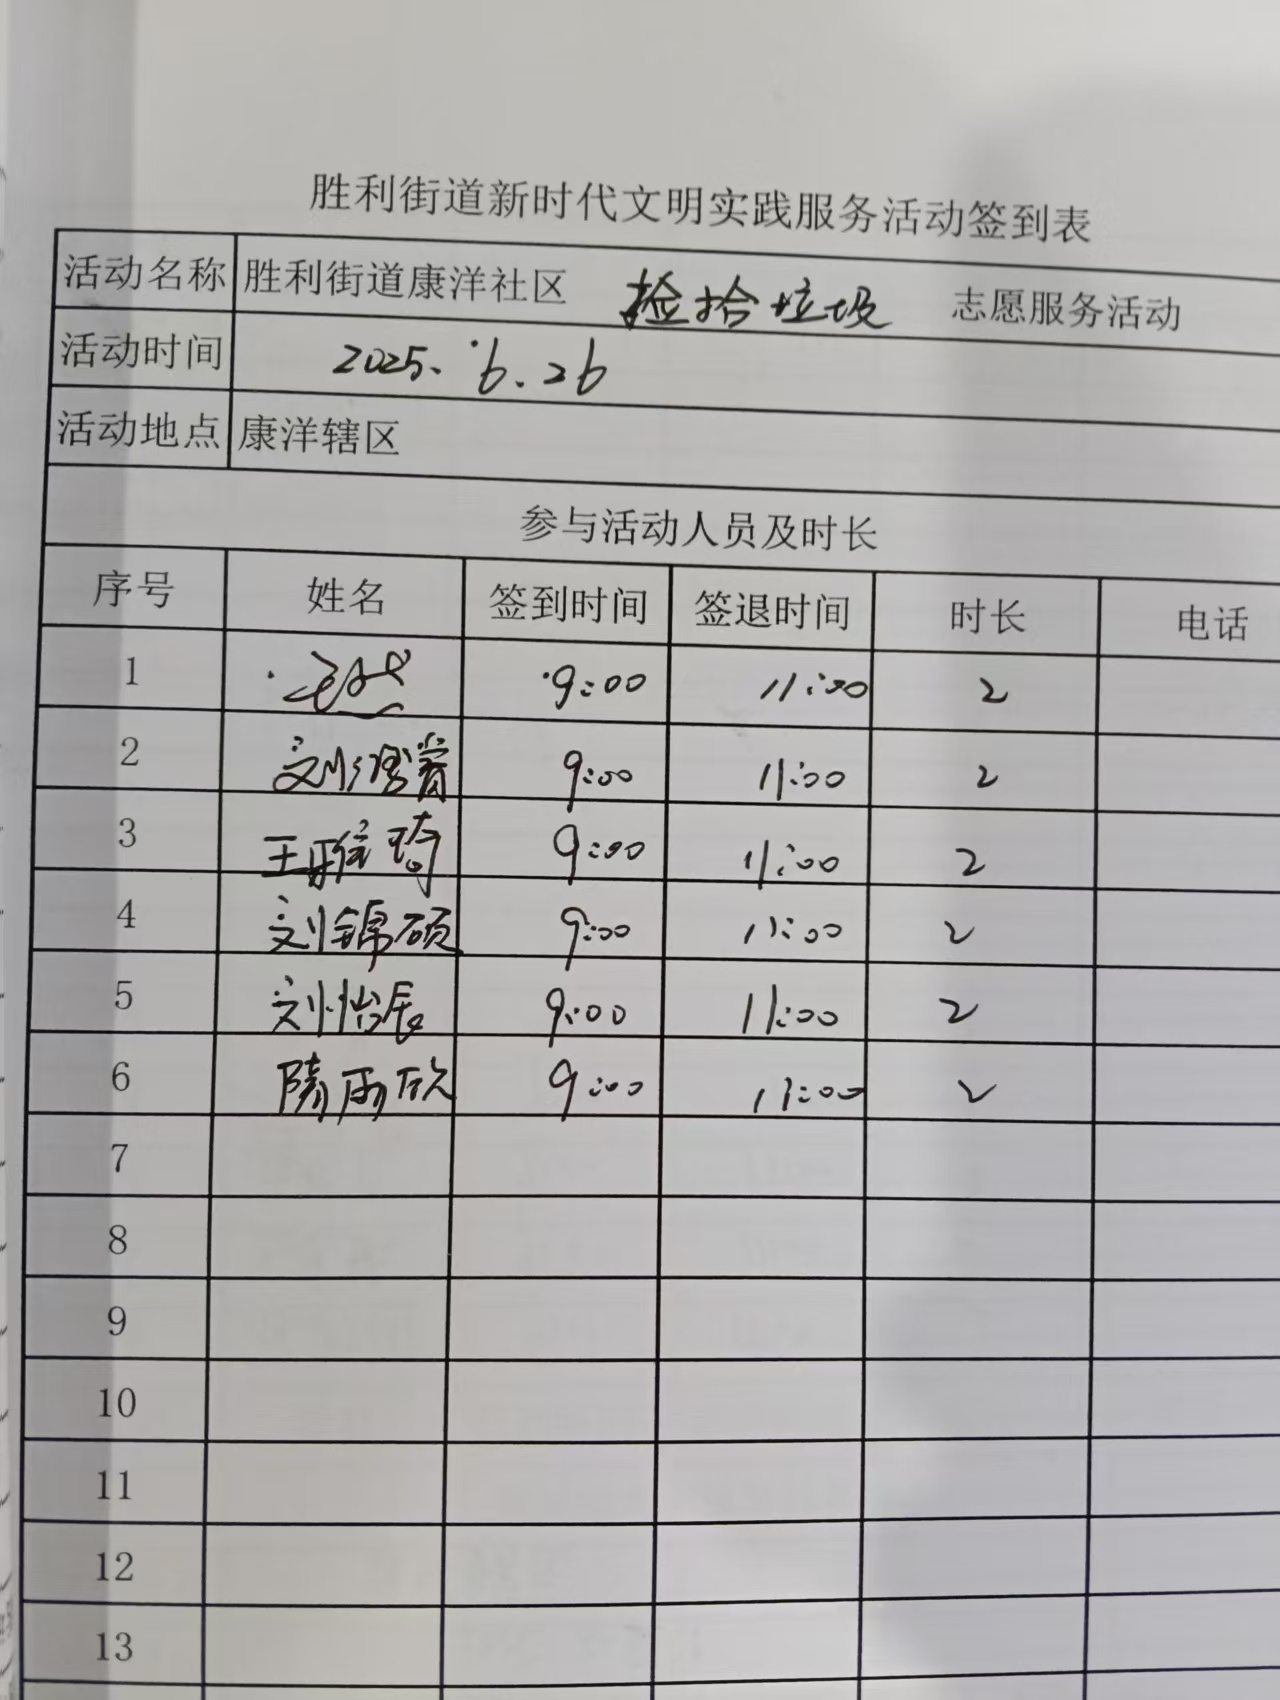 胜利街道新时代文明实践服务活动签到表
活动名称 胜利街道康洋社区 捡拾垃圾 志愿服务活动
活动时间 2025.6.26
活动地点 康洋辖区
参与活动人员及时长
序号 姓名 签到时间 签退时间 时长 电话
1 9:00 11:00 2
2 刘 9:00 11:00 2
3 王雅琦 9:00 11:00 2
4 刘锦硕 9:00 11:00 2
5 刘怡辰 9:00 11:00 2
6 隋雨欣 9:00 11:00 2
7
8
9
10
11
12
13